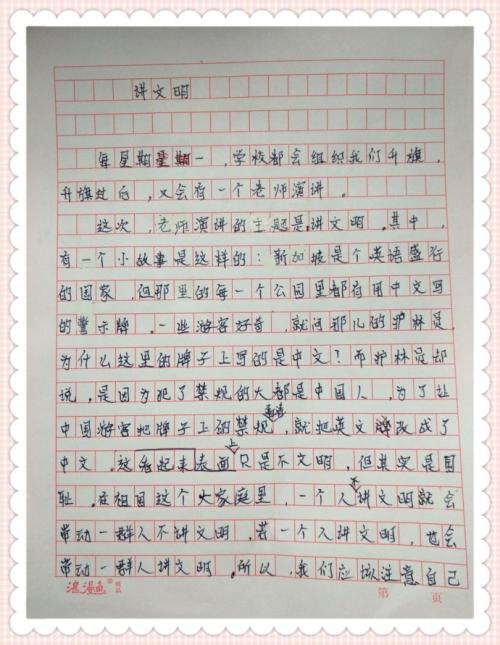 讲文明
每星期星期一，学校都会组织我们升旗，
升旗过后，又会有一个老师演讲。
这次，老师演讲的主题是讲文明。其中，
有一个小故事是这样的：新加坡是个英语盛行
的国家，但那里的每一个公园里都有用中文写
的警示牌。一些游客好奇，就问那儿的护林员，
为什么这里的牌子上写的是中文？而护林员却
说，是因为犯了禁规的大都是中国人，为了让
中国游客把牌子上的禁规看清，就把英文牌改成了
中文。这看起来表面上只是不文明，但其实是国
耻。在祖国这个大家庭里，一个人不讲文明就会
带动一群人不讲文明，若一个人讲文明，也会
带动一群人讲文明。所以，我们应该注意自己
浪漫鱼
第 页